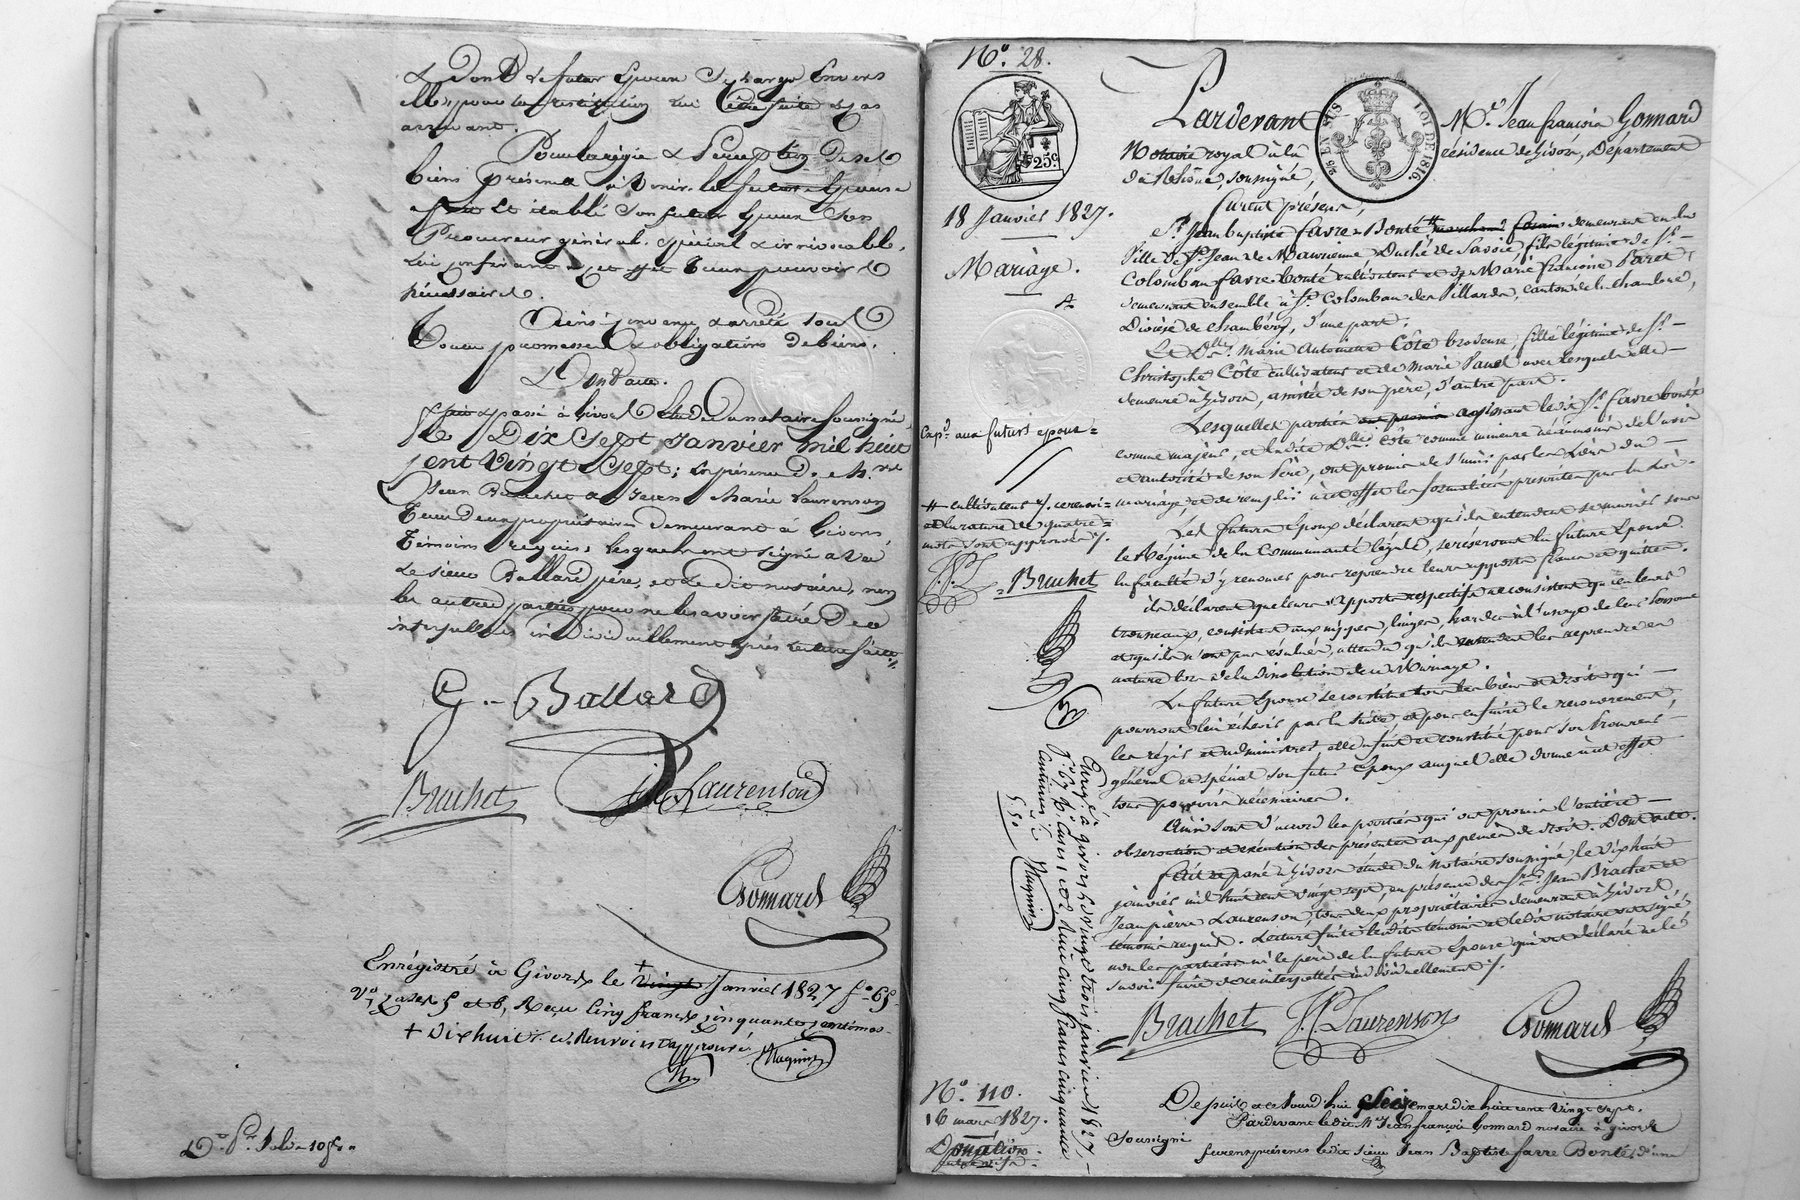 & Dont le futur Epoux se charge Envers
elle, pour la restitution lui Être faite le cas
arrivant.
Pour la régie & Perception De ses
biens présents & à venir, la future Epouse
fait Et établi Son futur Epoux Son
Procureur général, spécial & irrévocable,
lui conférant à cet effet tous pouvoirs
nécessaires.
Ainsi convenu & arrêté sous
Toutes promesses & obligations De biens.
Dont acte.
fait & passé à Givors Étude Du notaire soussigné
Le Dix sept Janvier mil huit
cent Vingt Sept; En présence De
Jean Brachet & Jean Marie Laurenson
Tous deux propriétaires demeurant à Givors,
Témoins requis; lesquels ont signé avec
Le sieur Ballard père, et Le dit notaire, non
les autres parties pour ne le savoir faire De ce
interpellées individuellement après lecture faite.
G. Ballard
Brachet
Laurenson
Gonnard
Enrégistré à Givors le + vingt Janvier 1827 f.o 65
V.o cases 5 et 6, Reçu Cinq francs cinquante centimes.
+ Dix huit. Renvoi approuvé.
Maguin
N.o 28.
25 c.
25 EN SUS
LOI DE 1816.
18 Janvier 1827.
Mariage.
Exp.on aux futurs epoux
# cultivateur. ce renvoi
et la rature de quatre
mots sont approuvés.
Brachet
Enreg.é à Givors le vingt trois janvier 1827
f.o 67 R.o Cases 1 et 2 Reçu cinq francs cinquante
centimes
Maguin
Pardevant M.e Jean françois Gonnard
Notaire royal à la résidence de Givors, Département
du Rhône, soussigné,
furent présens,
S.r Jean baptiste favre-Bonté # marchand forain demeurant en la
Ville de S.t Jean de Maurienne, Duché de Savoie, fils légitime de S.r
Colomban favre-bonté cultivateur et de Marie françoise Paret
demeurant ensemble à S.t Colomban des Villards, canton de la chambre,
Diocèse de Chambéry, d'une part.
Et D.lle Marie Antoinette Côte brodeuse, fille légitime de S.r
Christophe Côte cultivateur et de Marie Panel avec lesquels elle
demeure à Givors, assistée de son père, d'autre part.
Lesquelles parties ont promis agissant ledit S.r favre bonté
comme majeur, et ladite D.lle Côte comme mineure néanmoins de l'avis
et autorité de son Père, ont promis de s'unir par les Liens du
mariage, et de remplir à cet effet les formalités prescrites par la Loi.
Les futurs Epoux déclarent qu'ils entendent se marier sous
le Régime de la Communauté légale, se réservant la future Epouse
la faculté d'y renoncer pour reprendre leurs apports francs et quittes.
ils déclarent que leurs apports respectifs ne consistent qu'en leurs
trousseaux, consistant aux nippes, linges, hardes à l'usage de leur Personne
et qu'ils n'ont pas évalués, attendu qu'ils entendent les reprendre en
nature lors de la dissolution de ce Mariage.
La future Epouse se constitue tous les biens et droits qui
pourront lui échoir par la suite, et pour en faire le recouvrement
les régir et administrer, elle a fait et constitué pour son Procureur
général et spécial son futur Epoux auquel elle donne à cet effet
tous pouvoirs nécessaires.
Ainsi sont d'accord les parties qui ont promis l'entière
observation et exécution des présentes aux peines de droit. Dont acte.
fait et passé à Givors étude du notaire soussigné, le Dix huit
janvier mil huit cent vingt sept, en présence des S.rs Jean Brachet et
Jean pierre Laurenson, tous deux propriétaires demeurant à Givors,
témoins requis. Lecture faite lesdits témoins et ledit notaire ont signé
non les parties ni le père de la future Epouse qui ont déclaré ne le
savoir faire de ce interpellés individuellement.
Brachet J.P. Laurenson Gonnard
N.o 110.
16 mars 1827.
Donation
Depuis et ce Jourd'hui Seize mars dix huit cent Vingt Sept.
Pardevant le dit M.e Jean françois Gonnard notaire à givors
Soussigné
furent présents le dit sieur Jean Baptiste favre Bonté, d'une